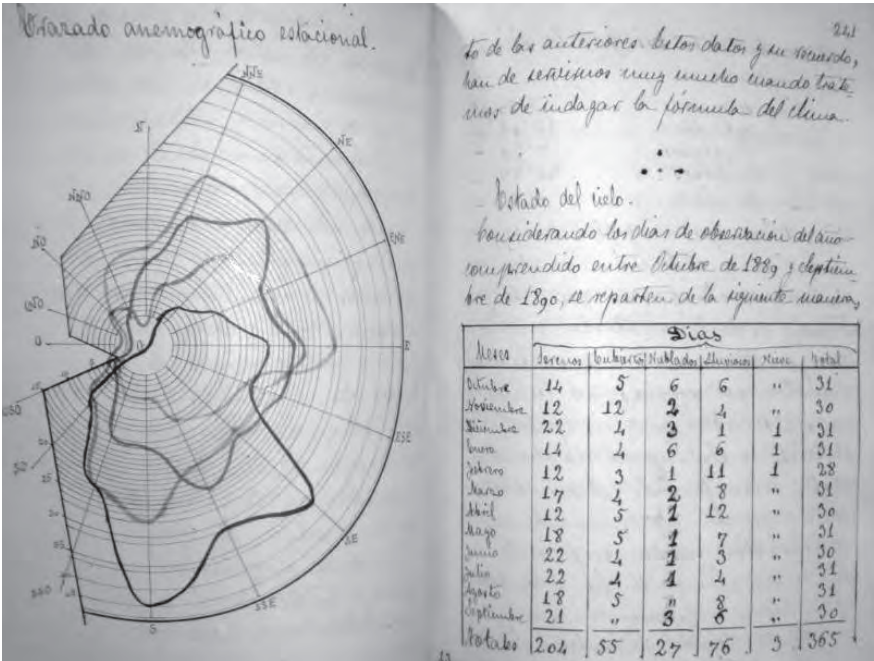 Trazado anemográfico estacional.
N
NNE
NE
ENE
E
ESE
SE
SSE
S
SSO
SO
OSO
O
ONO
NO
NNO
0
241
to de las anteriores. Estos datos y su recuerdo,
han de servirnos muy mucho cuando trate-
mos de indagar la fórmula del clima.
Estado del cielo.
Considerando los dias de observación del año
comprendido entre Octubre de 1889 y Septiem-
bre de 1890, se reparten de la siguiente manera,
Dias
Meses Serenos Cubiertos Nublados Lluviosos Nieve Total
Octubre 14 5 6 6 " 31
Noviembre 12 12 2 4 " 30
Diciembre 22 4 3 1 1 31
Enero 14 4 6 6 1 31
Febrero 12 3 1 11 1 28
Marzo 17 4 2 8 " 31
Abril 12 5 1 12 " 30
Mayo 18 5 1 7 " 31
Junio 22 4 1 3 " 30
Julio 22 4 1 4 " 31
Agosto 18 5 " 8 " 31
Septiembre 21 " 3 6 " 30
Totales 204 55 27 76 3 365